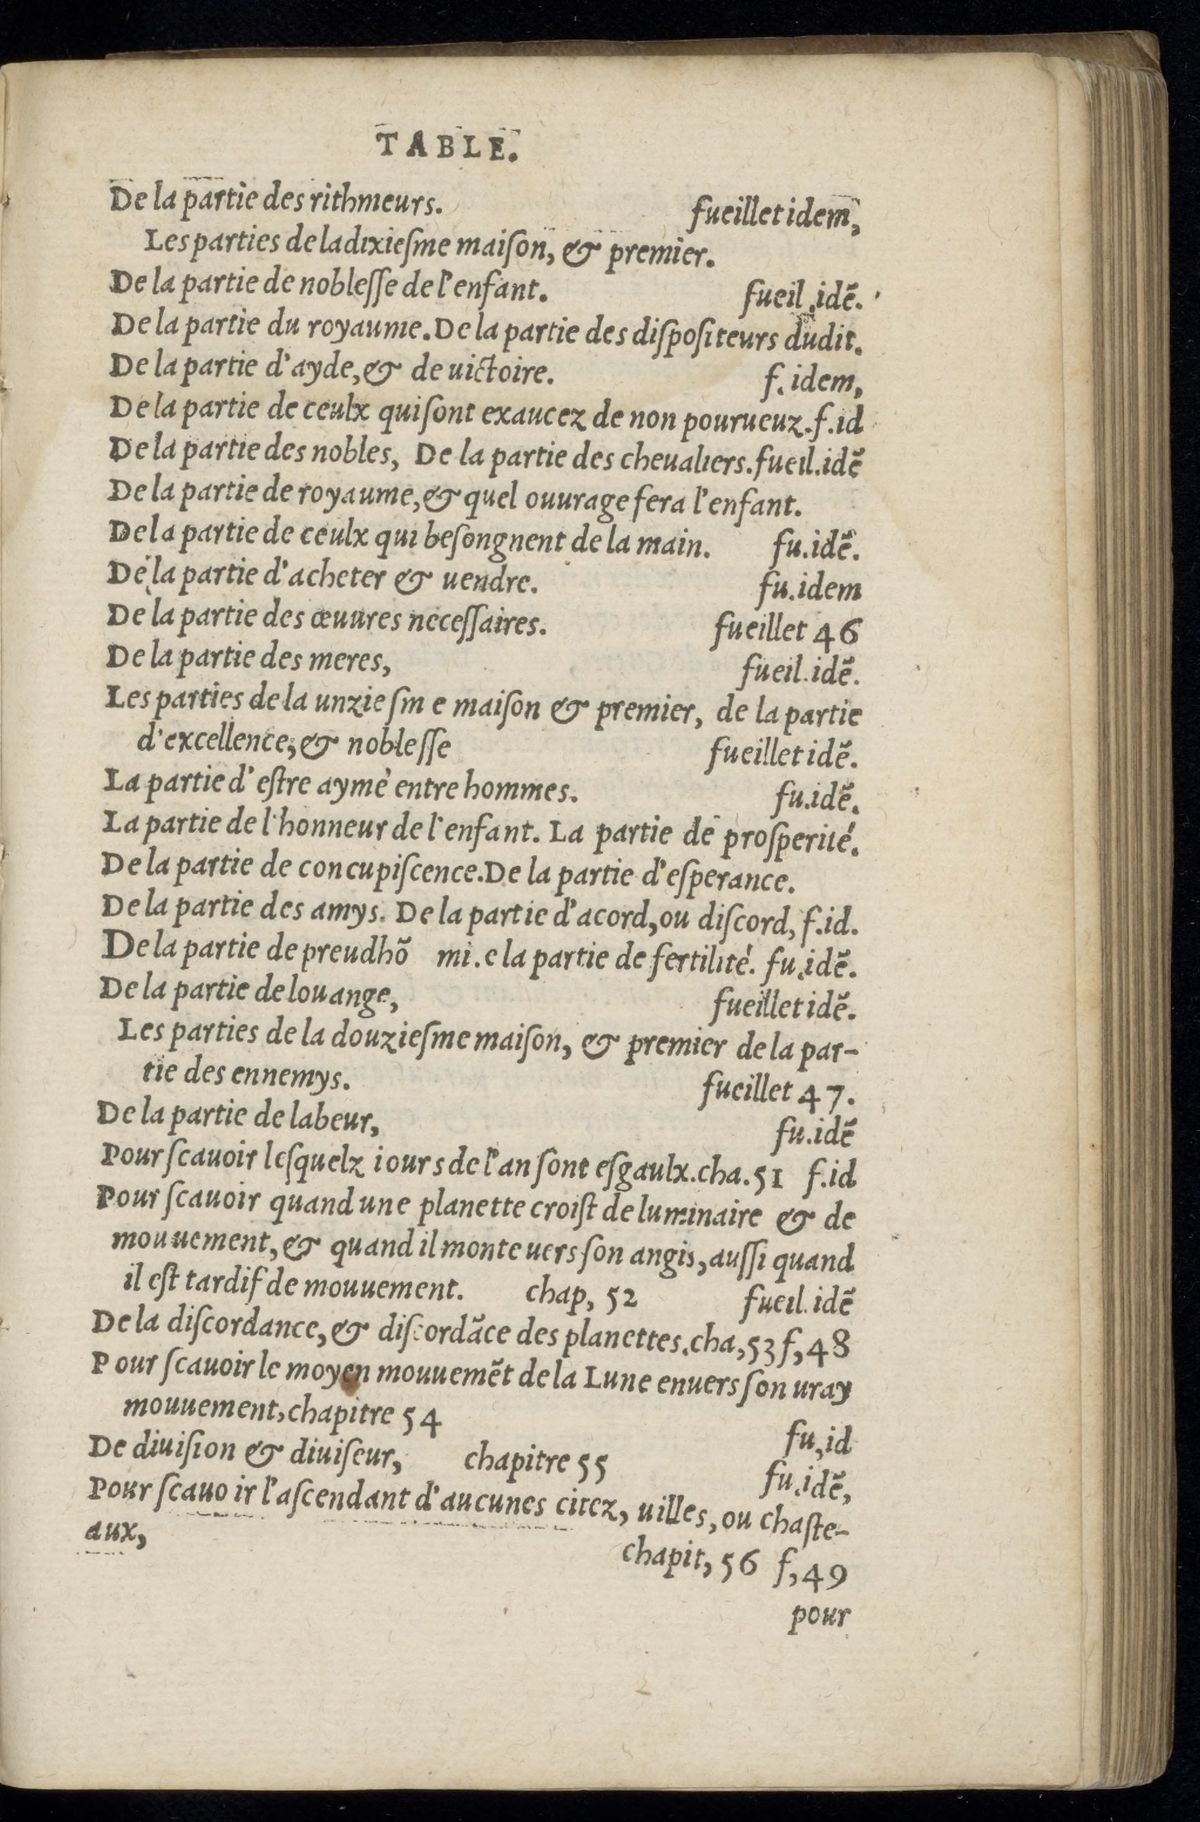 TABLE.
De la partie des rithmeurs. fueillet idem,
Les parties de la dixiesme maiſon, & premier.
De la partie de nobleſſe de l'enfant. fueil.idē.
De la partie du royaume. De la partie des diſpoſiteurs dudit.
De la partie d'ayde,& de uictoire. f. idem,
De la partie de ceulx qui ſont exaucez de non pourueuz.f.id
De la partie des nobles, De la partie des chevaliers.fueil.idē
De la partie de royaume,& quel ouurage fera l'enfant.
De la partie de ceulx qui beſongnent de la main. fu.idē.
De la partie d'acheter & uendre. fu.idem
De la partie des œuures neceſſaires. fueillet 46
De la partie des meres, fueil.idē.
Les parties de la unzieſm e maiſon & premier, de la partie
d'excellence,& nobleſſe fueillet idē.
La partie d'eſtre aymè entre hommes. fu.idē.
La partie de l'honneur de l'enfant. La partie de proſperité.
De la partie de concupiſcence.De la partie d'eſperance.
De la partie des amys. De la partie d'acord,ou diſcord, f.id.
De la partie de preudhō mi.e la partie de fertilité. fu.idē.
De la partie de louange, fueillet idē.
Les parties de la douzieſme maiſon, & premier de la par-
tie des ennemys. fueillet 47.
De la partie de labeur, fu.idē
Pour ſcauoir leſquelz iours de l'an ſont eſgaulx.cha.51 f.id
Pour ſcauoir quand une planette croiſt de luminaire & de
mouuement,& quand il monte uers ſon angis,auſſi quand
il eſt tardif de mouuement. chap, 52 fueil.idē
De la diſcordance,& diſcordāce des planettes.cha,53 f,48
Pour ſcauoir le moyen mouuemēt de la Lune enuers ſon uray
mouuement,chapitre 54 fu,id
De diuiſion & diuiſeur, chapitre 55 fu.idē,
Pour ſcauo ir l'aſcendant d'aucunes citez, uilles, ou chaſte-
aux, chapit, 56 f,49
pour